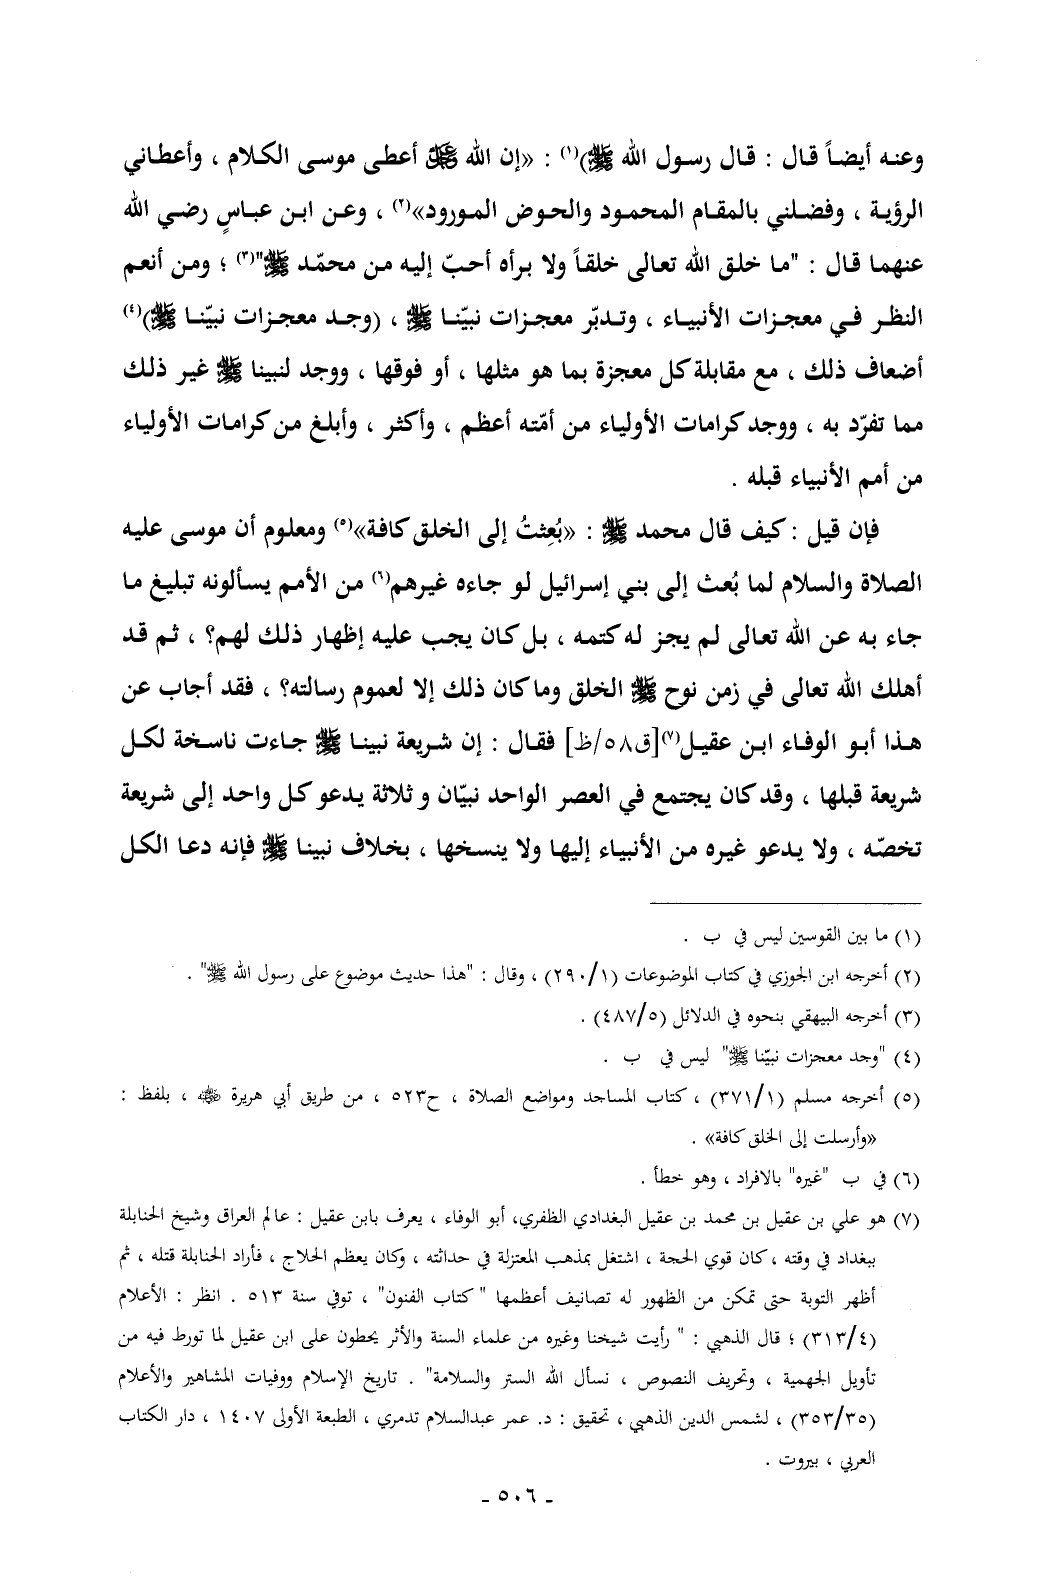 وعنه أيضاً قال : قال رسول الله ﷺ)(١) : «إن الله ﷿ أعطى موسى الكلام ، وأعطاني
الرؤية ، وفضلني بالمقام المحمود والحوض المورود»(٢) ، وعن ابن عباسٍ رضي الله
عنهما قال : "ما خلق الله تعالى خلقاً ولا برأه أحبّ إليه من محمّد ﷺ"(٣) ؛ ومن أنعم
النظر في معجزات الأنبياء ، وتدبّر معجزات نبيّنا ﷺ ، (وجد معجزات نبيّنا ﷺ)(٤)
أضعاف ذلك ، مع مقابلة كل معجزة بما هو مثلها ، أو فوقها ، ووجد لنبينا ﷺ غير ذلك
مما تفرّد به ، ووجد كرامات الأولياء من أمّته أعظم ، وأكثر ، وأبلغ من كرامات الأولياء
من أمم الأنبياء قبله .
فإن قيل : كيف قال محمد ﷺ : «بُعِثتُ إلى الخلق كافة»(٥) ومعلوم أن موسى عليه
الصلاة والسلام لما بُعث إلى بني إسرائيل لو جاءه غيرهم(٦) من الأمم يسألونه تبليغ ما
جاء به عن الله تعالى لم يجز له كتمه ، بل كان يجب عليه إظهار ذلك لهم؟ ، ثم قد
أهلك الله تعالى في زمن نوح ﷺ الخلق وما كان ذلك إلا لعموم رسالته؟ ، فقد أجاب عن
هذا أبو الوفاء ابن عقيل(٧)[ق٥٨/ظ] فقال : إن شريعة نبينا ﷺ جاءت ناسخة لكل
شريعة قبلها ، وقد كان يجتمع في العصر الواحد نبيّان و ثلاثة يدعو كل واحد إلى شريعة
تخصّه ، ولا يدعو غيره من الأنبياء إليها ولا ينسخها ، بخلاف نبينا ﷺ فإنه دعا الكل
(١) ما بين القوسين ليس في ب .
(٢) أخرجه ابن الجوزي في كتاب الموضوعات (٢٩٠/١) ، وقال : "هذا حديث موضوع على رسول الله ﷺ" .
(٣) أخرجه البيهقي بنحوه في الدلائل (٤٨٧/٥) .
(٤) "وجد معجزات نبيّنا ﷺ" ليس في ب .
(٥) أخرجه مسلم (٣٧١/١) ، كتاب المساجد ومواضع الصلاة ، ح٥٢٣ ، من طريق أبي هريرة ﵁ ، بلفظ :
«وأرسلت إلى الخلق كافة» .
(٦) في ب "غيره" بالافراد ، وهو خطأ .
(٧) هو علي بن عقيل بن محمد بن عقيل البغدادي الظفري، أبو الوفاء ، يعرف بابن عقيل : عالم العراق وشيخ الحنابلة
ببغداد في وقته ، كان قوي الحجة ، اشتغل بمذهب المعتزلة في حداثته ، وكان يعظم الحلاج ، فأراد الحنابلة قتله ، ثم
أظهر التوبة حتى تمكن من الظهور له تصانيف أعظمها " كتاب الفنون" ، توفي سنة ٥١٣ . انظر : الأعلام
(٣١٣/٤) ؛ قال الذهبي : " رأيت شيخنا وغيره من علماء السنة والأثر يحطون على ابن عقيل لما تورط فيه من
تأويل الجهمية ، وتحريف النصوص ، نسأل الله الستر والسلامة" . تاريخ الإسلام ووفيات المشاهير والأعلام
(٣٥٣/٣٥) ، لشمس الدين الذهبي ، تحقيق : د. عمر عبدالسلام تدمري ، الطبعة الأولى ١٤٠٧ ، دار الكتاب
العربي ، بيروت .
- ٥٠٦ -